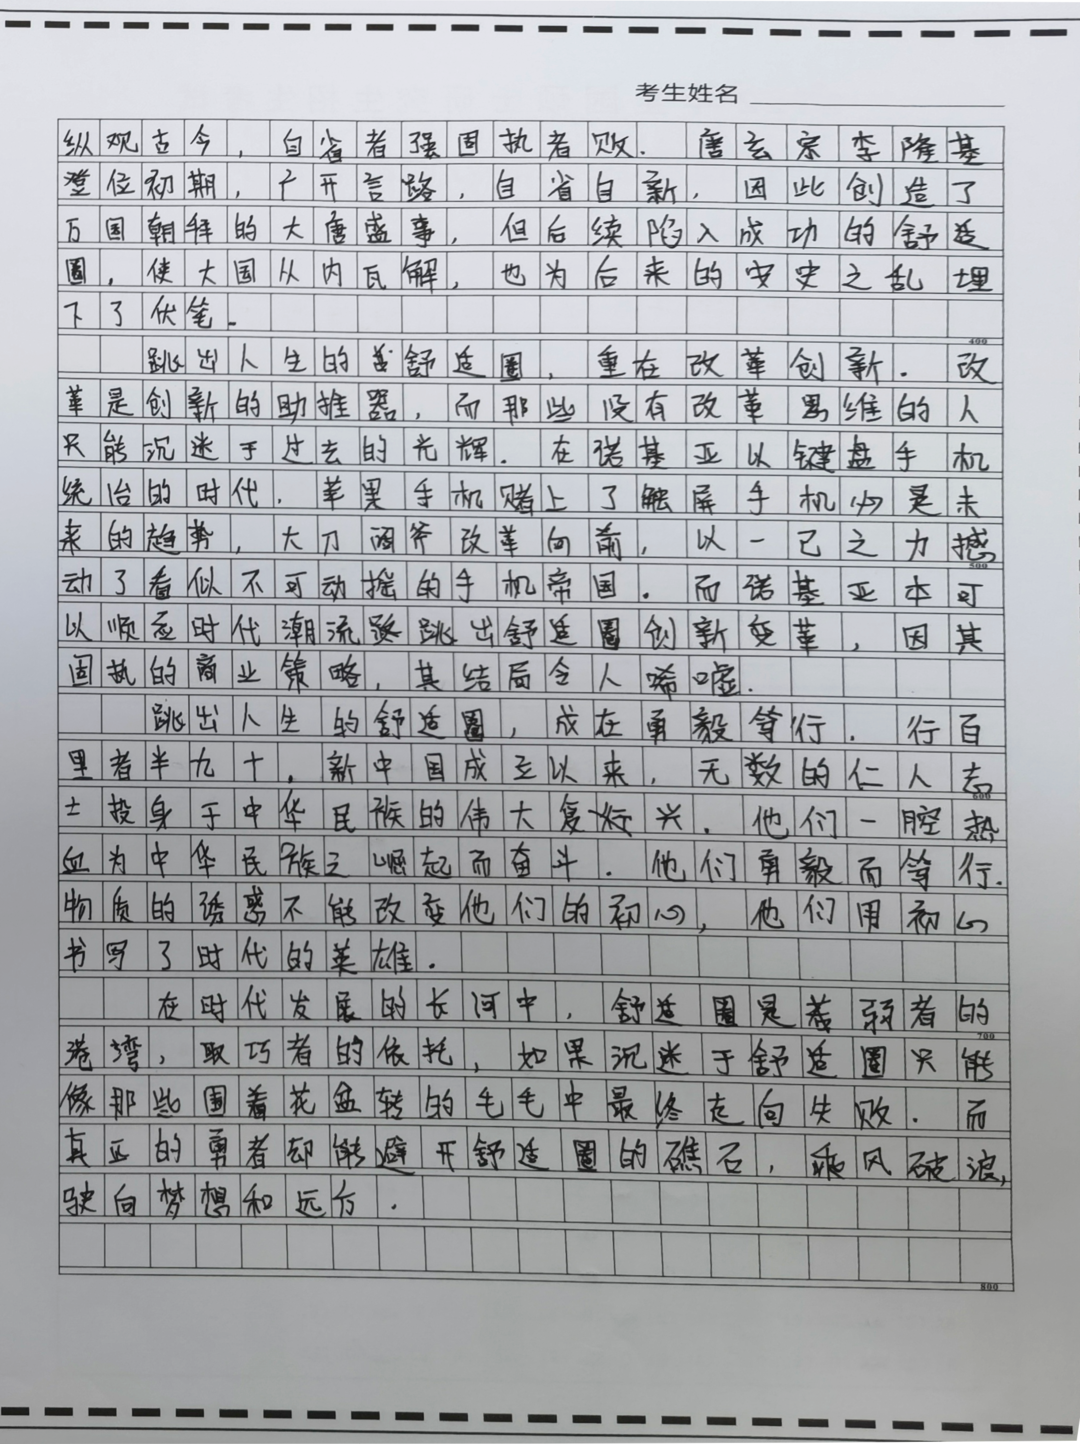 考生姓名
纵观古今，自省者强固执者败．唐玄宗李隆基
登位初期，广开言路，自省自新，因此创造了
万国朝拜的大唐盛事，但后续陷入成功的舒适
圈，使大国从内瓦解，也为后来的安史之乱埋
下了伏笔．
400
跳出人生的舒适圈，重在改革创新．改
革是创新的助推器，而那些没有改革思维的人
只能沉迷于过去的光辉．在诺基亚以键盘手机
统治的时代，苹果手机赌上了触屏手机必是未
来的趋势，大刀阔斧改革向前，以一己之力撼
500
动了看似不可动摇的手机帝国．而诺基亚本可
以顺应时代潮流跳出舒适圈创新变革，因其
固执的商业策略，其结局令人唏嘘．
跳出人生的舒适圈，成在勇毅笃行．行百
里者半九十，新中国成立以来，无数的仁人志
600
士投身于中华民族的伟大复兴．他们一腔热
血为中华民族之崛起而奋斗．他们勇毅而笃行．
物质的诱惑不能改变他们的初心，他们用初心
书写了时代的英雄．
在时代发展的长河中，舒适圈是羸弱者的
700
港湾，取巧者的依托，如果沉迷于舒适圈只能
像那些围着花盆转的毛毛虫最终走向失败．而
真正的勇者却能避开舒适圈的礁石，乘风破浪，
驶向梦想和远方．
800